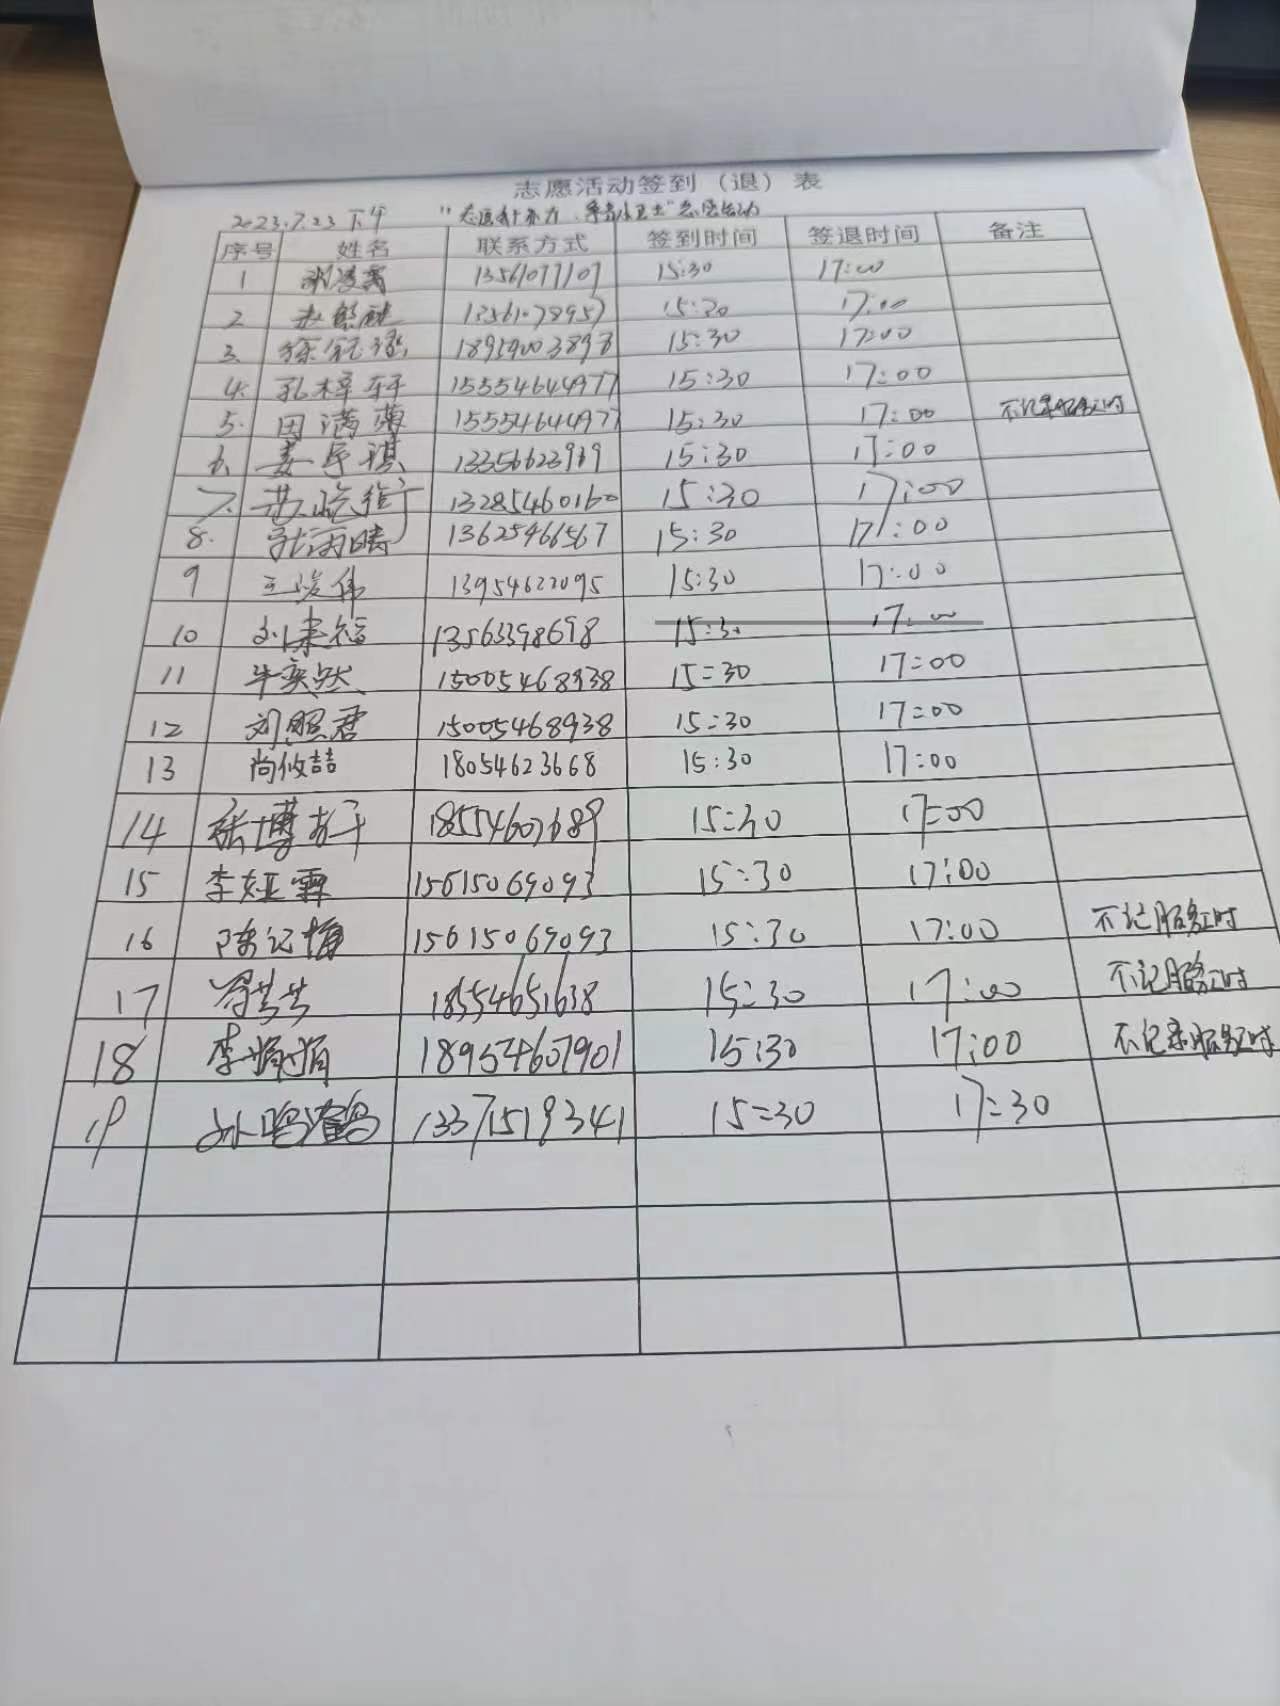 志愿活动签到（退）表
2023.7.23 下午 志愿活动
序号 姓名 联系方式 签到时间 签退时间 备注
1 13561077107 15:30 17:00
2 15:30 17:00
3. 15:30 17:00
4. 孔梓轩 15554644977 15:30 17:00
5. 田满菊 15554644977 15:30 17:00 不记录服务工时
6. 姜 琪 13356623969 15:30 17:00
7. 13285460160 15:30 17:00
8. 张雨晴 13625466567 15:30 17:00
9 王浚伟 13954622095 15:30 17:00
10 刘 13563398698 15:30 17:00
11 牛奕然 15005468938 15=30 17:00
12 刘照君 15005468938 15=30 17=00
13 尚攸喆 18054623668 15:30 17:00
14 张博 18554607689 15=30 17=00
15 李娅霏 15615069093 15:30 17:00
16 陈 15615069093 15:30 17:00 不记服务工时
17 芸芸 18554651638 15=30 17:00 不记服务工时
18 李娟娟 18954607901 15:30 17:00 不记录服务工时
19 孙鸣 13371519341 15=30 17=30